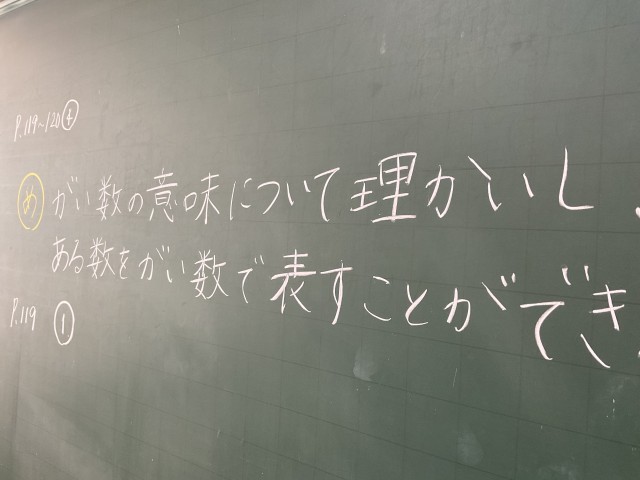 P.119~120④
め がい数の意味について理かいし、
ある数をがい数で表すことができ
P.119 ①